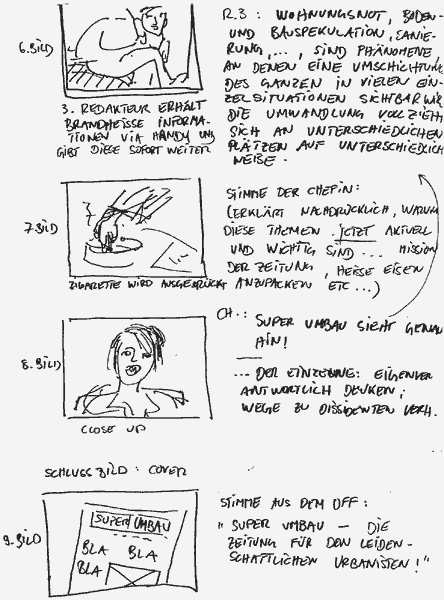 6.BILD
R.3 : WOHNUNGSNOT, BODEN-
UND BAUSPEKULATION, SANIE-
RUNG,..., SIND PHÄNOMENE
AN DENEN EINE UMSCHICHTUNG
DES GANZEN IN VIELEN EIN-
ZELSITUATIONEN SICHTBAR WIRD
DIE UMWANDLUNG VOLLZIEHT
SICH AN UNTERSCHIEDLICHEN
PLÄTZEN AUF UNTERSCHIEDLICHE
WEISE.
3. REDAKTEUR ERHÄLT
BRANDHEISSE INFORMA-
TIONEN VIA HANDY UND
GIBT DIESE SOFORT WEITER
7.BILD
STIMME DER CHEFIN:
(ERKLÄRT NACHDRÜCKLICH, WARUM
DIESE THEMEN JETZT AKTUELL
UND WICHTIG SIND ... MISSION
DER ZEITUNG, HEISSE EISEN
ANZUPACKEN ETC...)
ZIGARETTE WIRD AUSGEDRÜCKT
8.BILD
CH.: SUPER UMBAU SIEHT GENAU
HIN!
... DER EINZELNE: EIGENVER
ANTWORTLICH DENKEN;
WEGE ZU DISSIDENTEN VERH.
CLOSE UP
SCHLUSSBILD : COVER
9.BILD
SUPER UMBAU
BLA BLA
BLA
STIMME AUS DEM OFF :
"SUPER UMBAU — DIE
ZEITUNG FÜR DEN LEIDEN-
SCHAFTLICHEN URBANISTEN!"